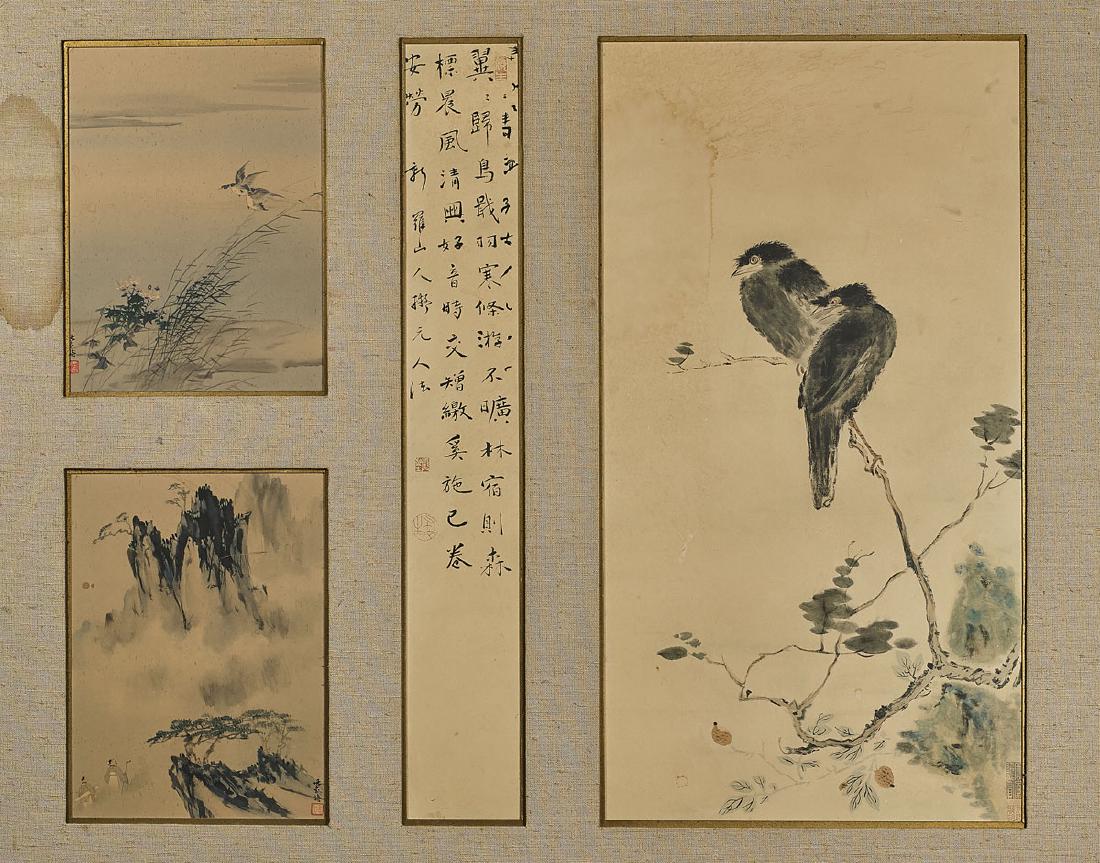 翼〻歸鳥戢羽寒條游不曠林宿則森
標晨風清興好音時交矰繳奚施已卷
安勞 新羅山人擬元人法